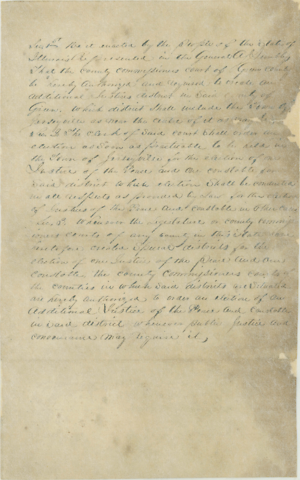 Sec 1. Be it enacted by the People of the State of
Illinois represented in the General Assembly
That the county commissioners court of Green county
be hereby authorized and required to create an
additional election district in said county of
Green which district shall include the Town of
Jerseyville
Sec 2. The clerk of said court shall order an
election as soon as practicable to be held in
the Town of Jerseyville for the election of one
Justice of the Peace and one constable for
said district which election shall be conducted
in all respects as provided by law for the election
of Justices of the Peace and constables in other cases
Sec 3. Whenever the legislature or county commis
sioners courts of any county in this State have
created special districts for the
election of one Justice of the peace and one
constable the county commissioners court of
the counties in which said districts are situated
are hereby authorized to order an election of an
additional Justice of the Peace and constable
in said district whenever public justice and
convenience may require it,